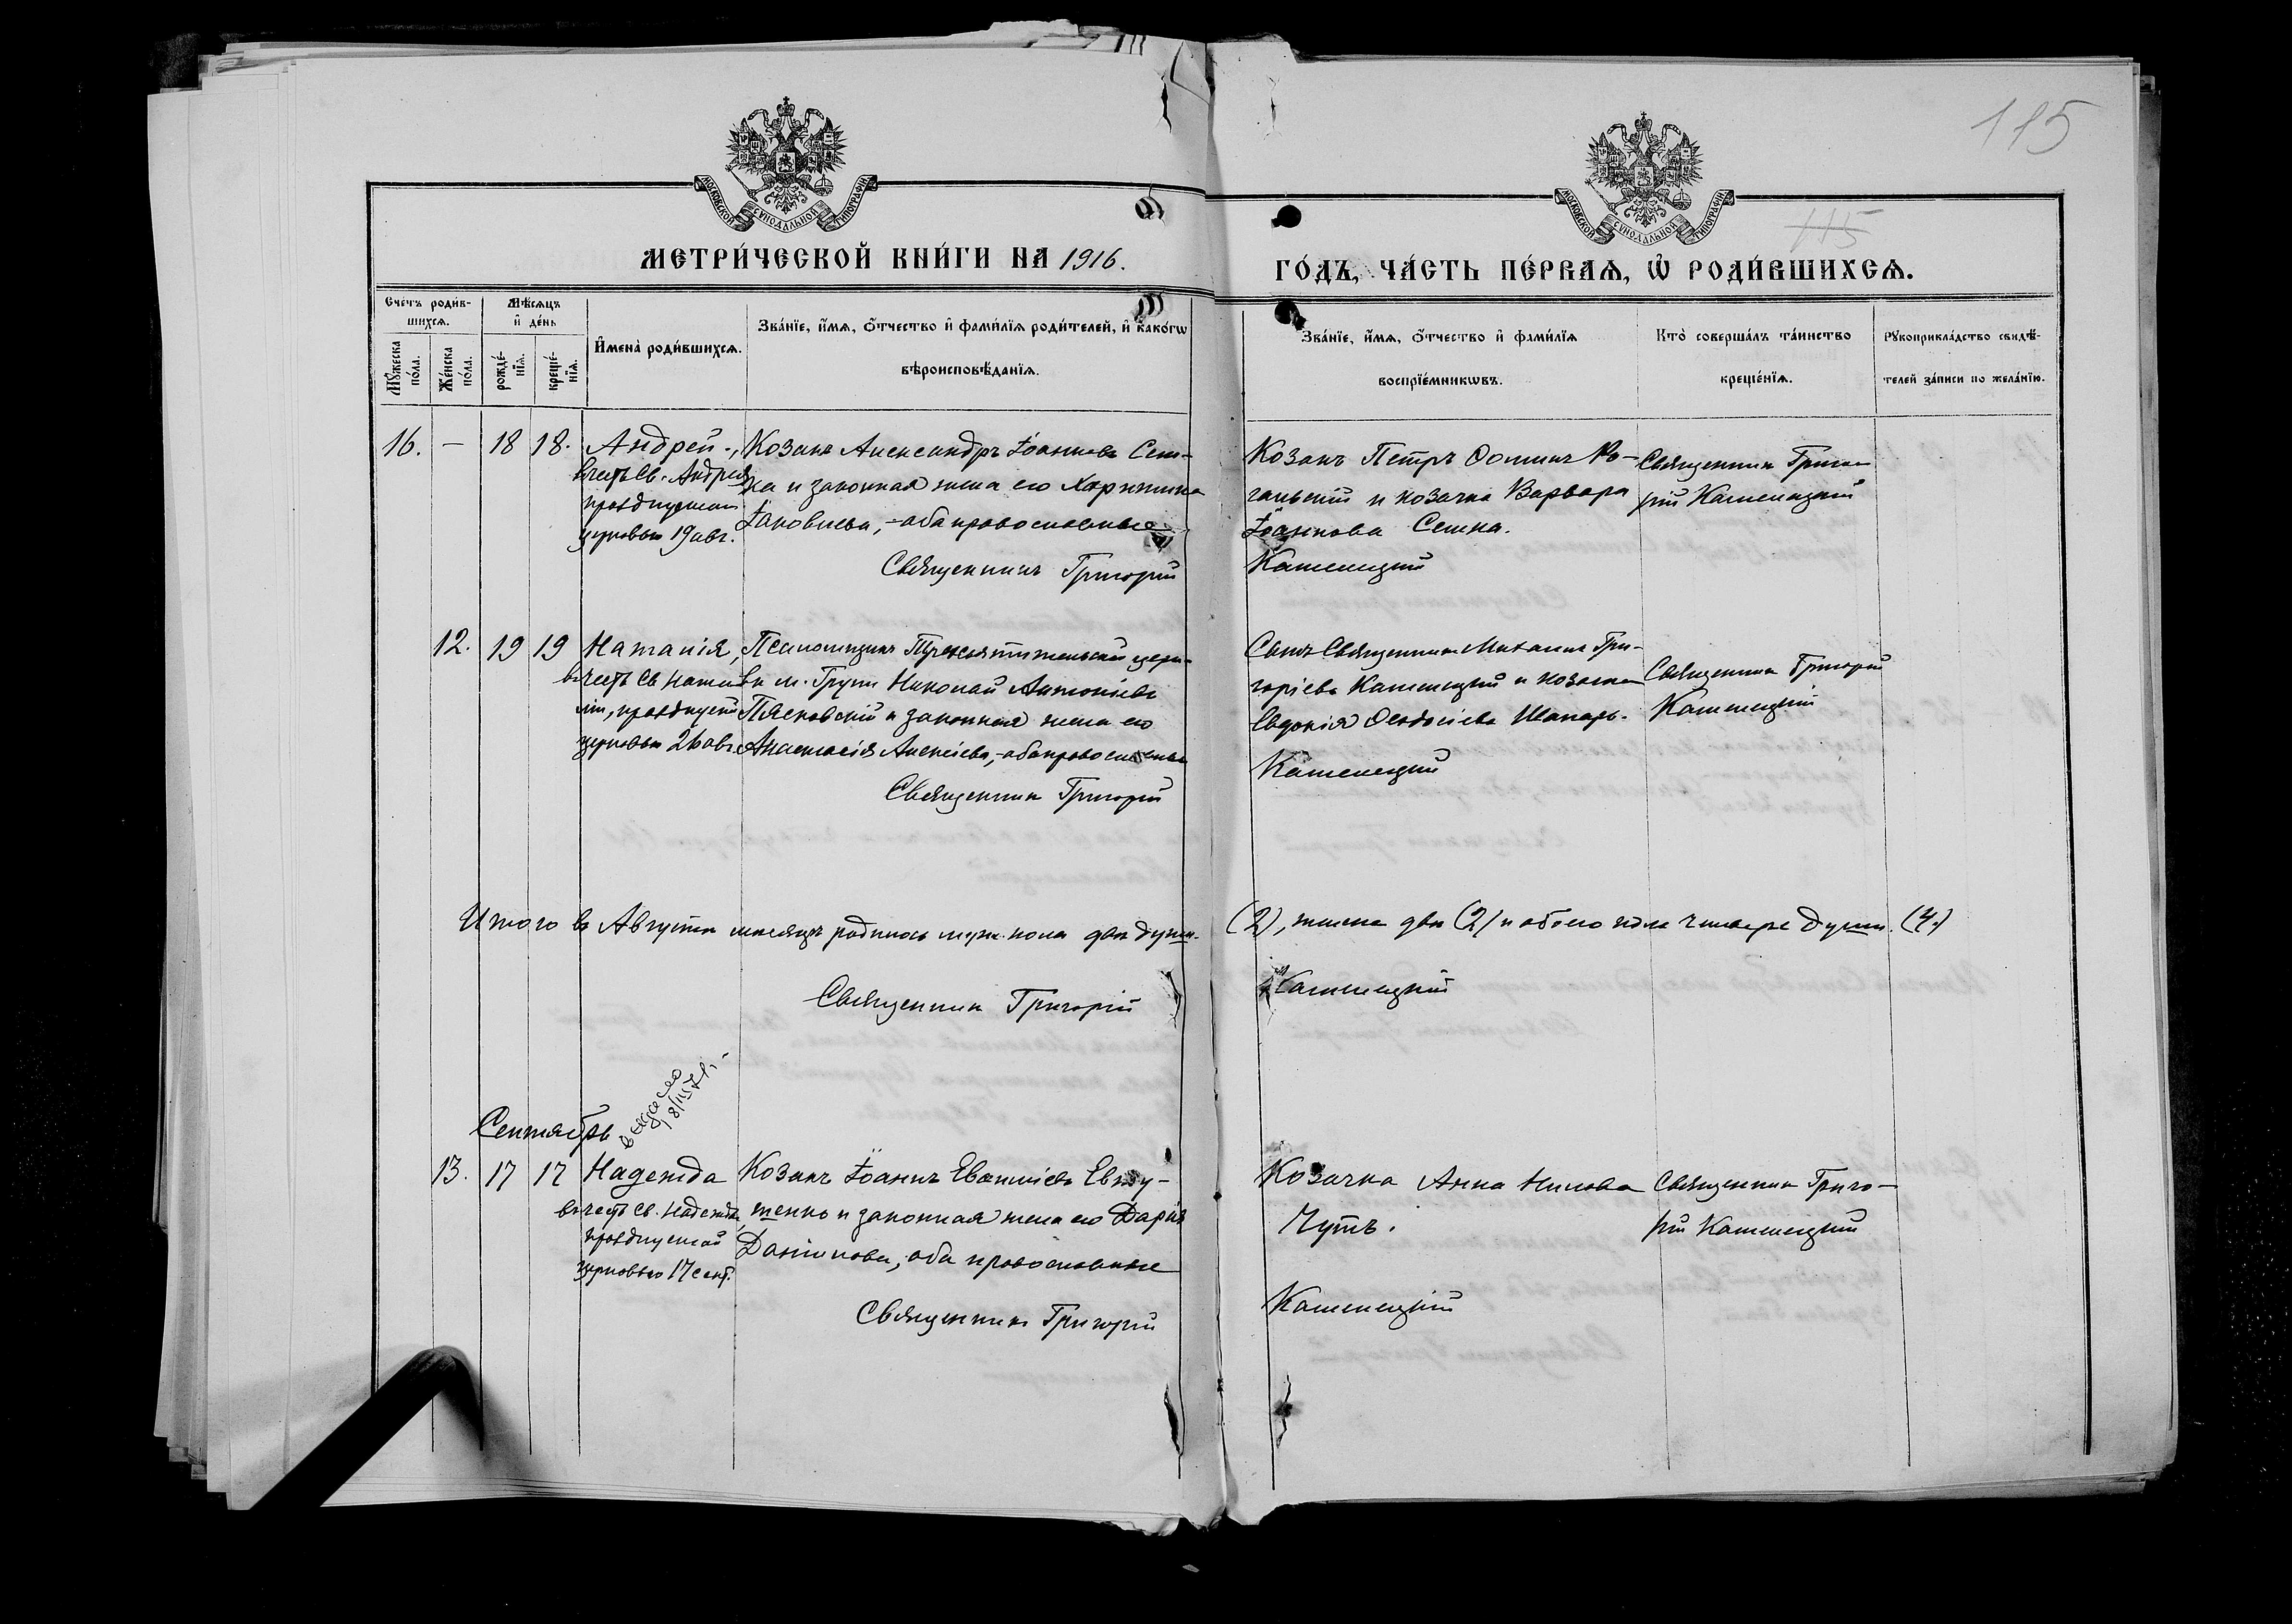 115
МОСКОВСКОЙ СѴНОДАЛЬНОЙ ТИПОГРАФІИ
МОСКОВСКОЙ СѴНОДАЛЬНОЙ ТИПОГРАФІИ
115
МЕТРИ́ЧЕСКОЙ КНИ́ГИ НА 1916.
ГО́ДЪ, ЧА́СТЬ ПЕ́РВАѦ, Ѽ РОДИ́ВШИХСѦ.
Сче́тъ роди́в-
шихсѧ.
Мꙋ́жеска по́ла.
Же́нска по́ла.
Мѣ́сѧцъ
и҆ де́нь
рожде́-
нїѧ.
креще́-
нїѧ.
И҆мена̀ роди́вшихсѧ.
Зва́нїе, и҆́мѧ, ѻ҆́тчество и҆ фами́лїѧ роди́телей, и҆ како́гѡ
вѣроисповѣ́данїѧ.
Зва́нїе, и҆́мѧ, ѻ҆́тчество и҆ фами́лїѧ
воспрїе́мникѡвъ.
Кто̀ соверша́лъ та́инство
креще́нїѧ.
Рꙋкоприкла́дство свидѣ́-
телей за́писи по жела́нїю.
16. — 18 18. Андрей,
въ честь Св. Андрея
празднуемаго
церковью 19 авг.
Козакъ Александръ Іоанновъ Сем-
ка и законная жена его
Іаковлева, - оба православные
Священникъ Григорій
Козакъ Петръ Ѳоминъ Ро-
гальскій и козачка Варвара
Іоаннова Семка.
Каменецкій
Священникъ Григо-
рій Каменецкій
12. 19 19 Наталія,
въ честь Св. Ната-
ліи, празднуемой
церковью 26 авг.
Псаломщикъ Трехсвятительской церк-
ви м. Груни Николай Антоніевъ
Пясковскій и законная жена его
Анастасія Алексіева, - оба православные
Священникъ Григорій
Сынъ Священника Михаилъ Гри-
горіевъ Каменецкій и козачка
Евдокія Ѳеодосіева Шапарь.
Каменецкій
Священникъ Григорій
Каменецкій
Итого въ Августѣ мѣсяцѣ родилось муж. пола двѣ души.
(2), женска двѣ (2) и обоего пола четыре души. (4.)
Священникъ Григорій
Каменецкій
Сентябрь
13. 17 17 Надежда
въ честь Св. Надежды,
празднуемой
церковью 17 сент.
Козакъ Іоаннъ Евѳиміевъ Евту-
шенко и законная жена его Дарія
Даніилова, оба православные
Священникъ Григорій
Козачка Анна Нилова
Чутъ.
Каменецкій
Священникъ Григо-
рій Каменецкій